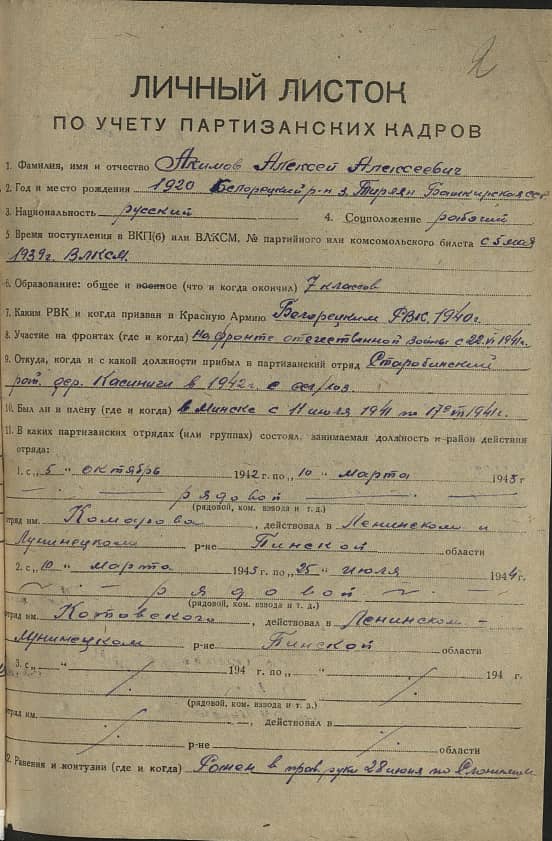 2
ЛИЧНЫЙ ЛИСТОК
ПО УЧЕТУ ПАРТИЗАНСКИХ КАДРОВ
1. Фамилия, имя и отчество Акимов Алексей Алексеевич
2. Год и место рождения 1920 Белорецкий р-н з. Тирлян Башкирская сср
3. Национальность русский 4. Соцположение рабочий
5. Время поступления в ВКП(б) или ВЛКСМ, № партийного или комсомольского билета с 5 мая
1939г. ВЛКСМ.
6. Образование: общее и военное (что и когда окончил) 7 классов
7. Каким РВК и когда призван в Красную Армию РВК. 1940г.
8. Участие на фронтах (где и когда) На фронте отечественной войны с 22.VI 1941г.
9. Откуда, когда и с какой должности прибыл в партизанский отряд Старобинский
дер. в 1942г. с
10. Был ли в плену (где и когда) в Минске с 11 июля 1941 по 1941г.
11. В каких партизанских отрядах (или группах) состоял, занимаемая должность и район действия
отряда:
1. с „5 “ октябрь 1942 г. по „10 “ марта 1943 г
рядовой
(рядовой, ком. взвода и т. д.)
отряд им. Комарова , действовал в Ленинском и
Лунинецком р-не Пинской области
2. с „10 “ марта 1943 г. по „25 “ июля 1944 г.
рядовой
(рядовой, ком. взвода и т. д.)
отряд им. Котовского , действовал в Ленинском -
Лунинецком р-не Пинской области
3. с „ “ 194 г. по „ “ 194 г.
(рядовой, ком. взвода и т. д.)
отряд им. , действовал в
р-не области
2. Ранения и контузии (где и когда) Ранен в прав. руки 28 июня